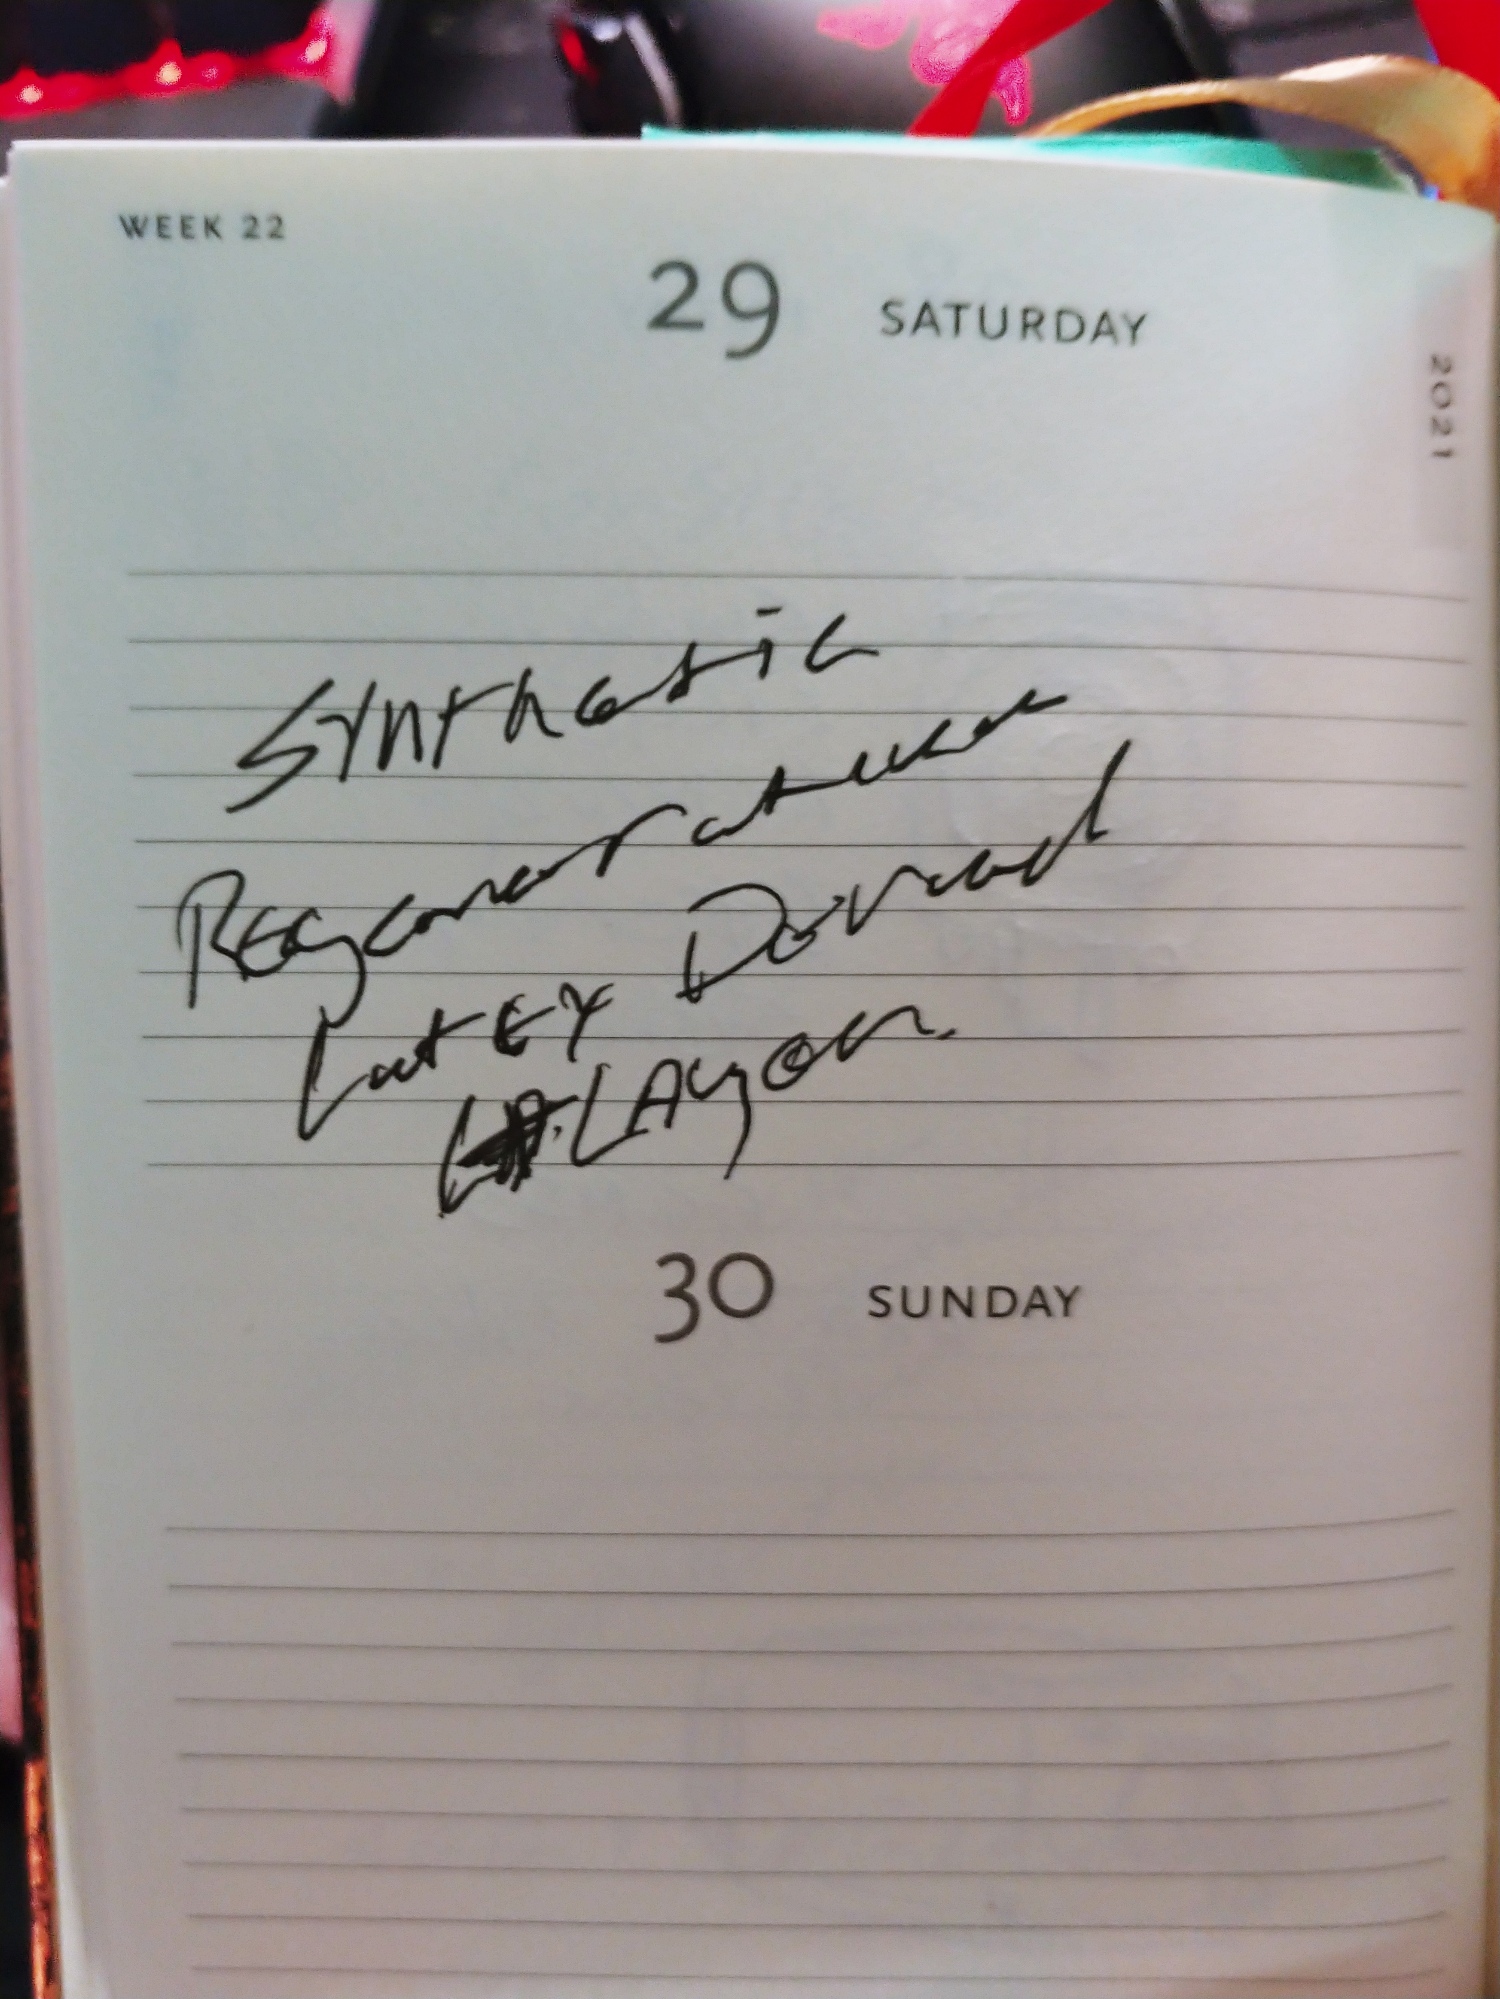 WEEK 22
29 SATURDAY
2021
Synthetic
Regenerative
Latex
LAyer
30 SUNDAY